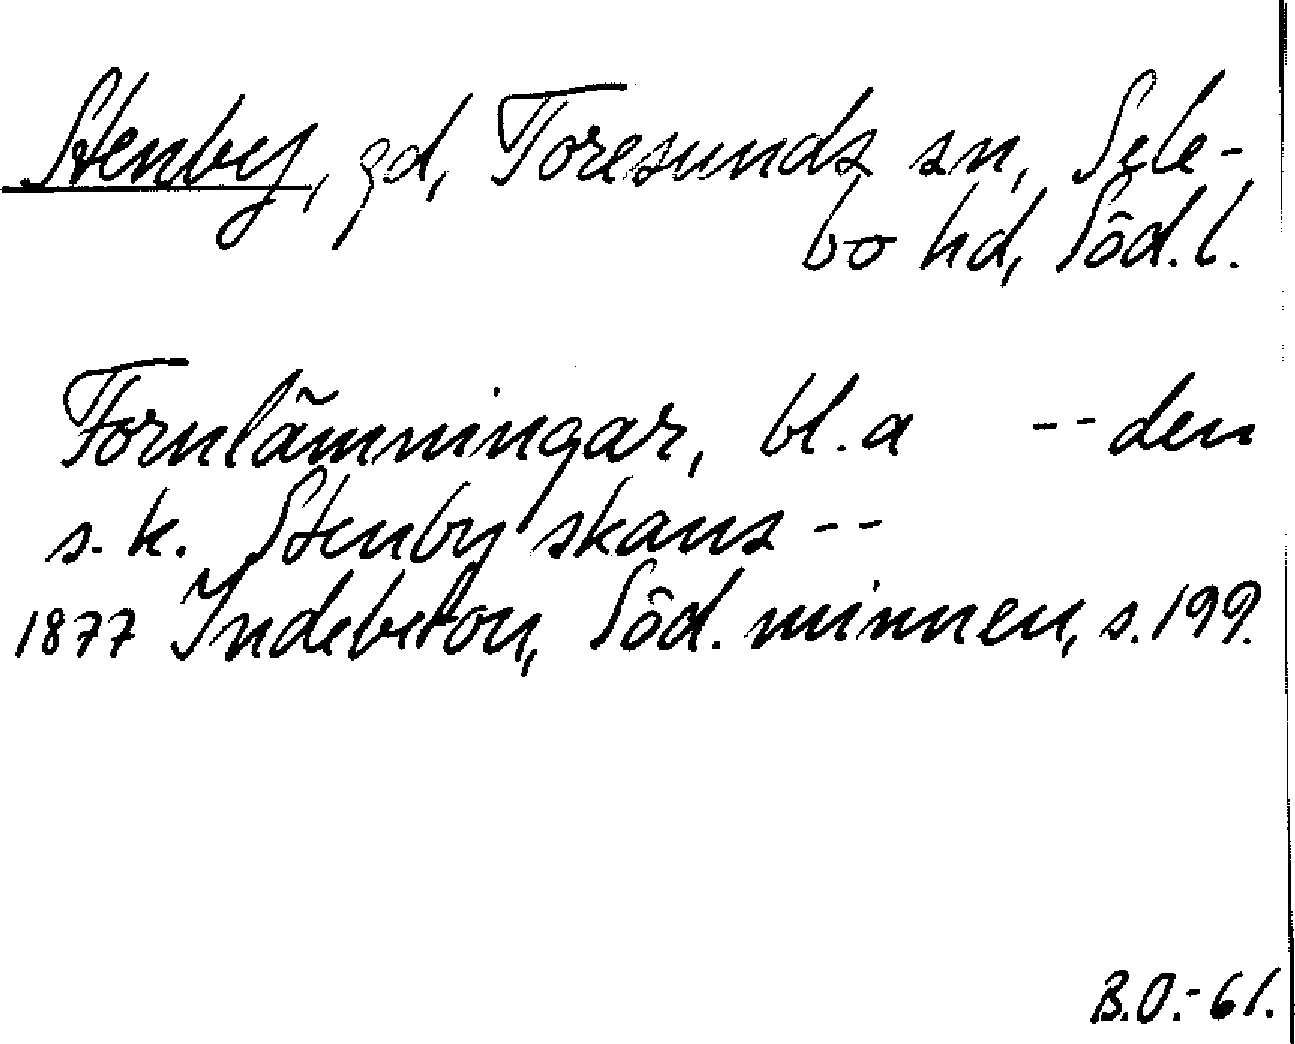 Stenby, gd, Toresunds sn, Sele-
bo hd, Söd. l.
Fornlämningar, bl. a -- den
s. k. Stenby skans --
1877 Indebetou, Söd. minnen, s. 199.
B.O.-61.